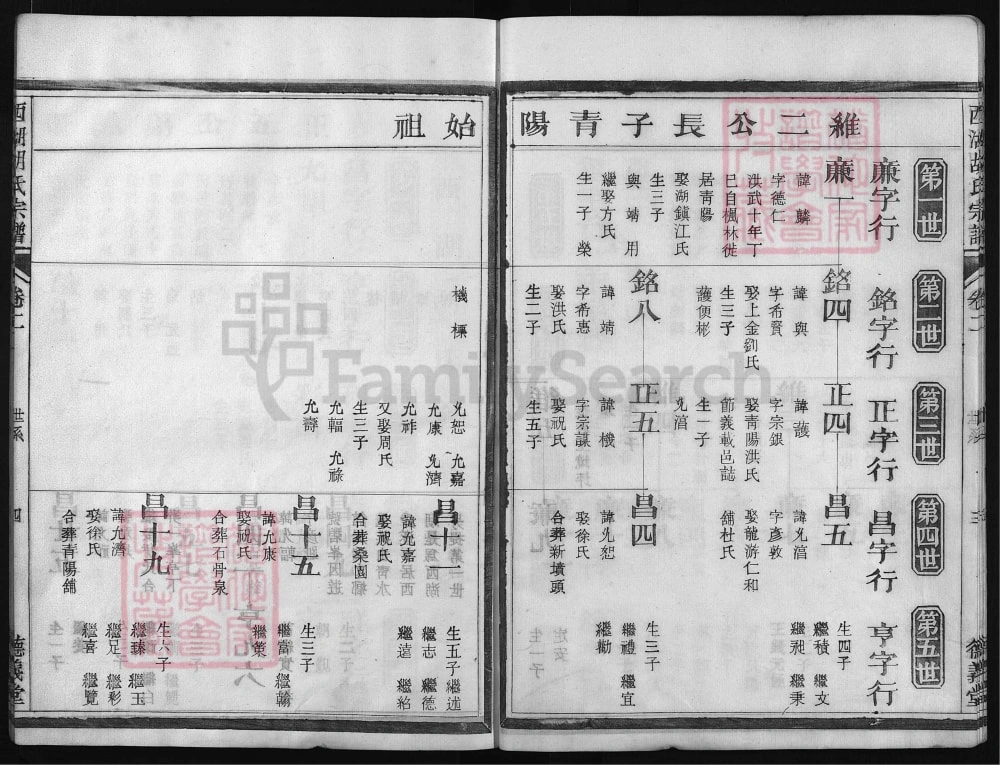 西湖胡氏宗譜
卷二
世系
三
德義堂
第一世
第二世
第三世
第四世
第五世
廉字行
銘字行
正字行
昌字行
亨字行
維二公長子青陽
始祖
廉一
諱麟
字德仁
洪武十年丁
巳自楓林徙
居青陽
娶湖鎮江氏
生三子
與 靖 用
繼娶方氏
生一子 榮
銘四
諱與
字希賢
娶上金劉氏
生三子
護便彬
銘八
諱靖
字希惠
娶洪氏
生二子
機 標
正四
諱護
字宗銀
娶青陽洪氏
節義載邑誌
生一子
允滔
正五
諱機
字宗謀
娶祝氏
生五子
允恕 允嘉
允康 允濟
允祚
又娶周氏
生三子
允輻 允祿
允壽
昌五
諱允滔
字彥敦
娶龍游仁和
舖杜氏
生四子
繼積 繼文
繼昶 繼秉
昌四
諱允恕
娶徐氏
合葬新墳頭
生三子
繼禮 繼宜
繼勛
昌十一
諱允嘉
娶祝氏
合葬桑園
生五子繼述
繼志 繼德
繼遠 繼紹
昌十五
諱允康
娶祝氏
合葬石骨泉
生三子
繼富 繼翰
繼策
昌十九
諱允濟
娶徐氏
合葬青陽舖
生六子
繼臻 繼玉
繼足 繼彩
繼喜 繼覽
西湖胡氏宗譜
卷二
世系
四
德義堂
FamilySearch